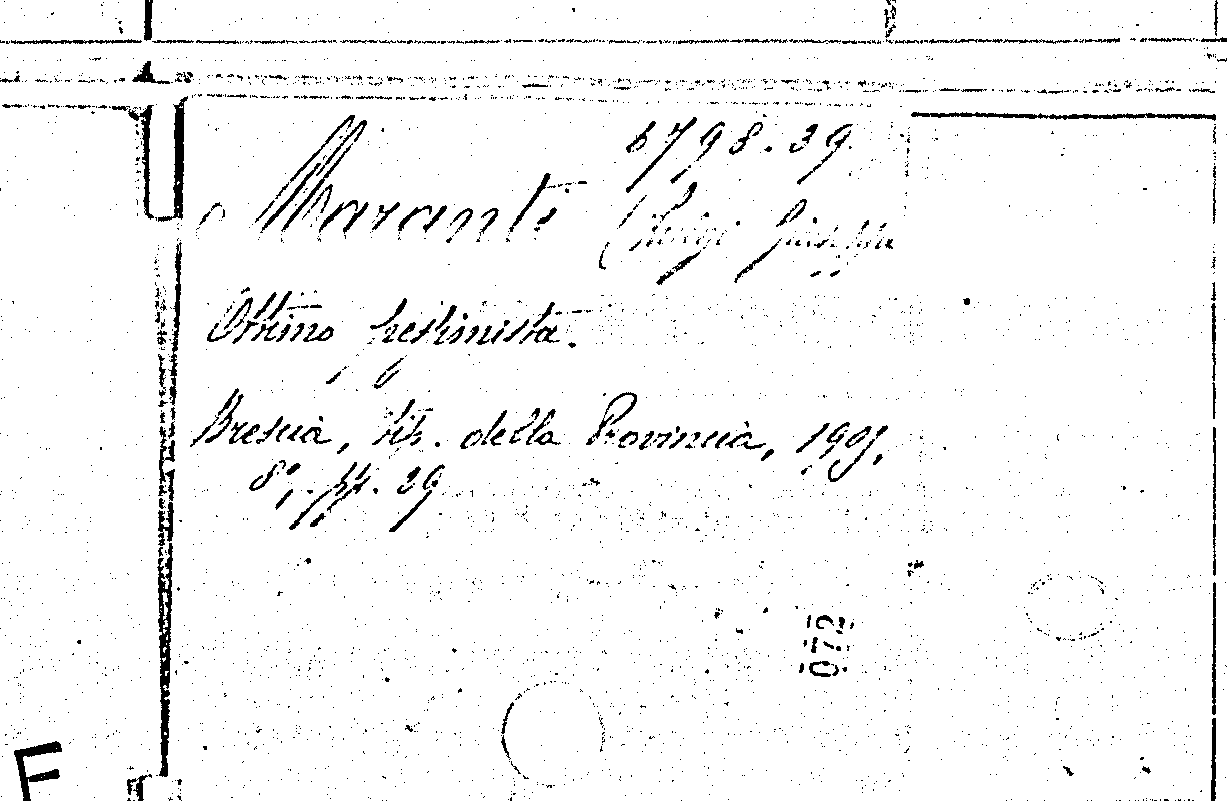 6798.29
Maranti (Luigi Giuseppe
Ottimo pessimista.
Brescia, tip. della Provincia, 1905,
8°, pp. 29
072
F